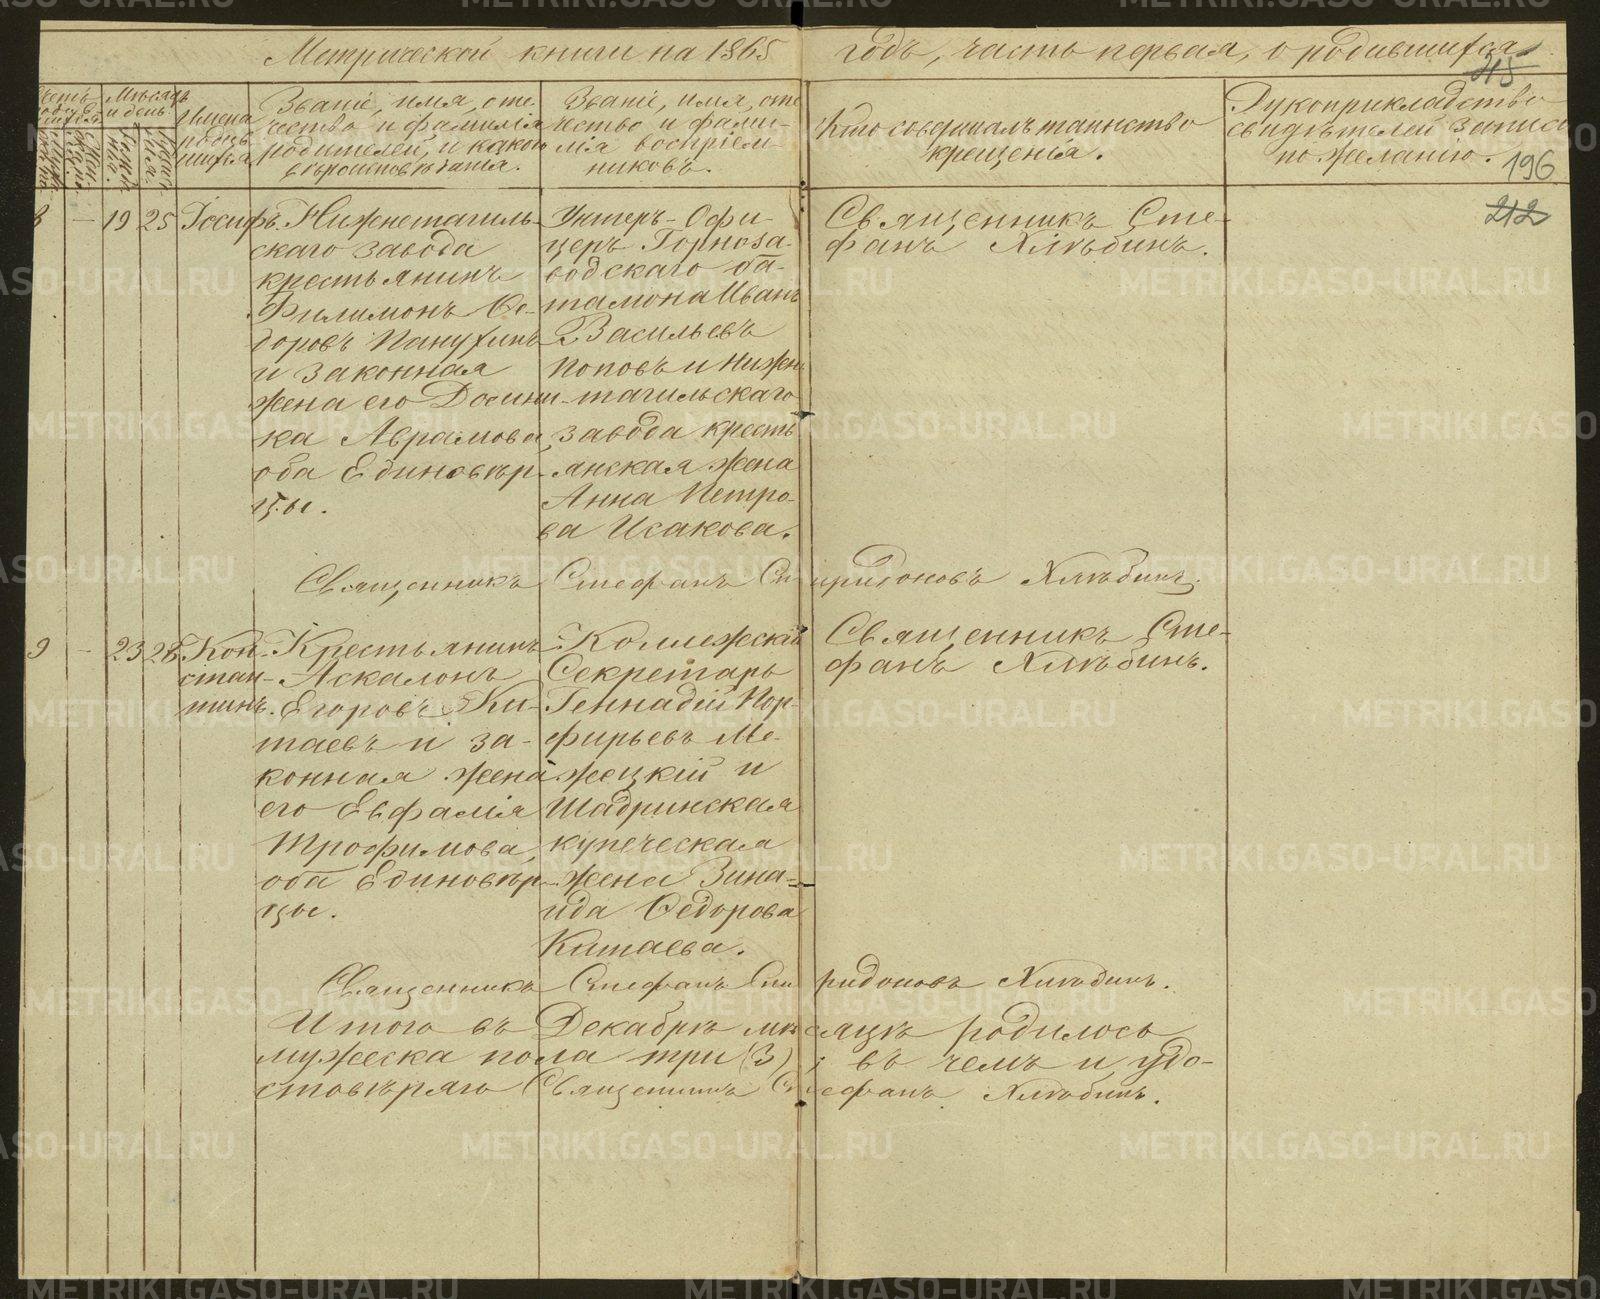 Метрической книги на 1865 годъ, часть первая, о родившихся
215
196
212
Мѣсяцъ и день.
Имена родив-
шихся.
Званіе, имя, оте-
чество и фамилія
родителей, и какого
вѣроисповѣданія.
Званіе, имя, оте-
чество и фами-
лія воспріем-
никовъ.
Кто совершалъ таинство
крещенія.
Рукоприкладство
свидѣтелей записи
по желанію.
8 - 19 25 Іосифъ.
Нижнетагиль-
скаго завода
крестьянинъ
Филимонъ Ѳе-
доровъ Панухинъ
и законная
жена его Домни-
ка Аврамова,
оба Единовѣр-
цы.
Унтеръ-Офи-
церъ Горноза-
водскаго ба-
талiона Иванъ
Васильевъ
Поповъ и Нижне-
тагильскаго
завода кресть-
янская жена
Анна Петро-
ва Исакова.
Священникъ Сте-
фанъ Хлѣбинъ.
Священникъ Стефанъ Спиридоновъ Хлѣбинъ.
9 - 23 28 Кон-
стан-
тинъ.
Крестьянинъ
Аскалонъ
Егоровъ Ки-
таевъ и за-
конная жена
его Евфалія
Трофимова,
оба Единовѣр-
цы.
Коллежскій
Секретарь
Геннадій Пор-
фирьевъ Ме-
жецкій и
Шадринская
купеческая
жена Зина-
ида Ѳедорова
Китаева.
Священникъ Сте-
фанъ Хлѣбинъ.
Священникъ Стефанъ Спиридоновъ Хлѣбинъ.
Итого въ Декабрѣ мѣсяцѣ родилось
мужеска пола три (3); въ чемъ и удо-
стовѣряю Священникъ Стефанъ Хлѣбинъ.
METRIKI.GASO-URAL.RU